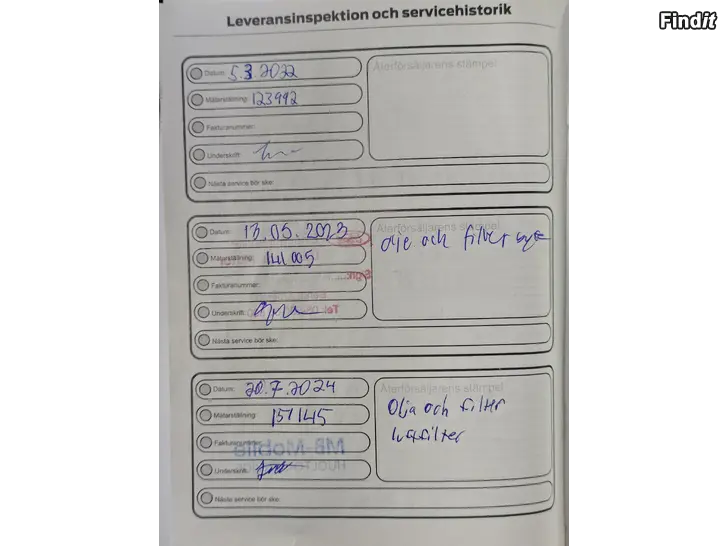 Findit
Leveransinspektion och servicehistorik
Datum: 5.3.2022
Återförsäljarens stämpel
Mätarställning: 123992
Fakturanummer:
Underskrift:
Nästa service bör ske:
Datum: 13.05.2023
Återförsäljarens stämpel
olje och filter
Mätarställning: 141005
Fakturanummer:
Underskrift:
Nästa service bör ske:
Datum: 20.7.2024
Återförsäljarens stämpel
Olja och filter
Mätarställning: 151145
luftfilter
Fakturanummer:
MB-Mobile
Underskrift:
Nästa service bör ske: